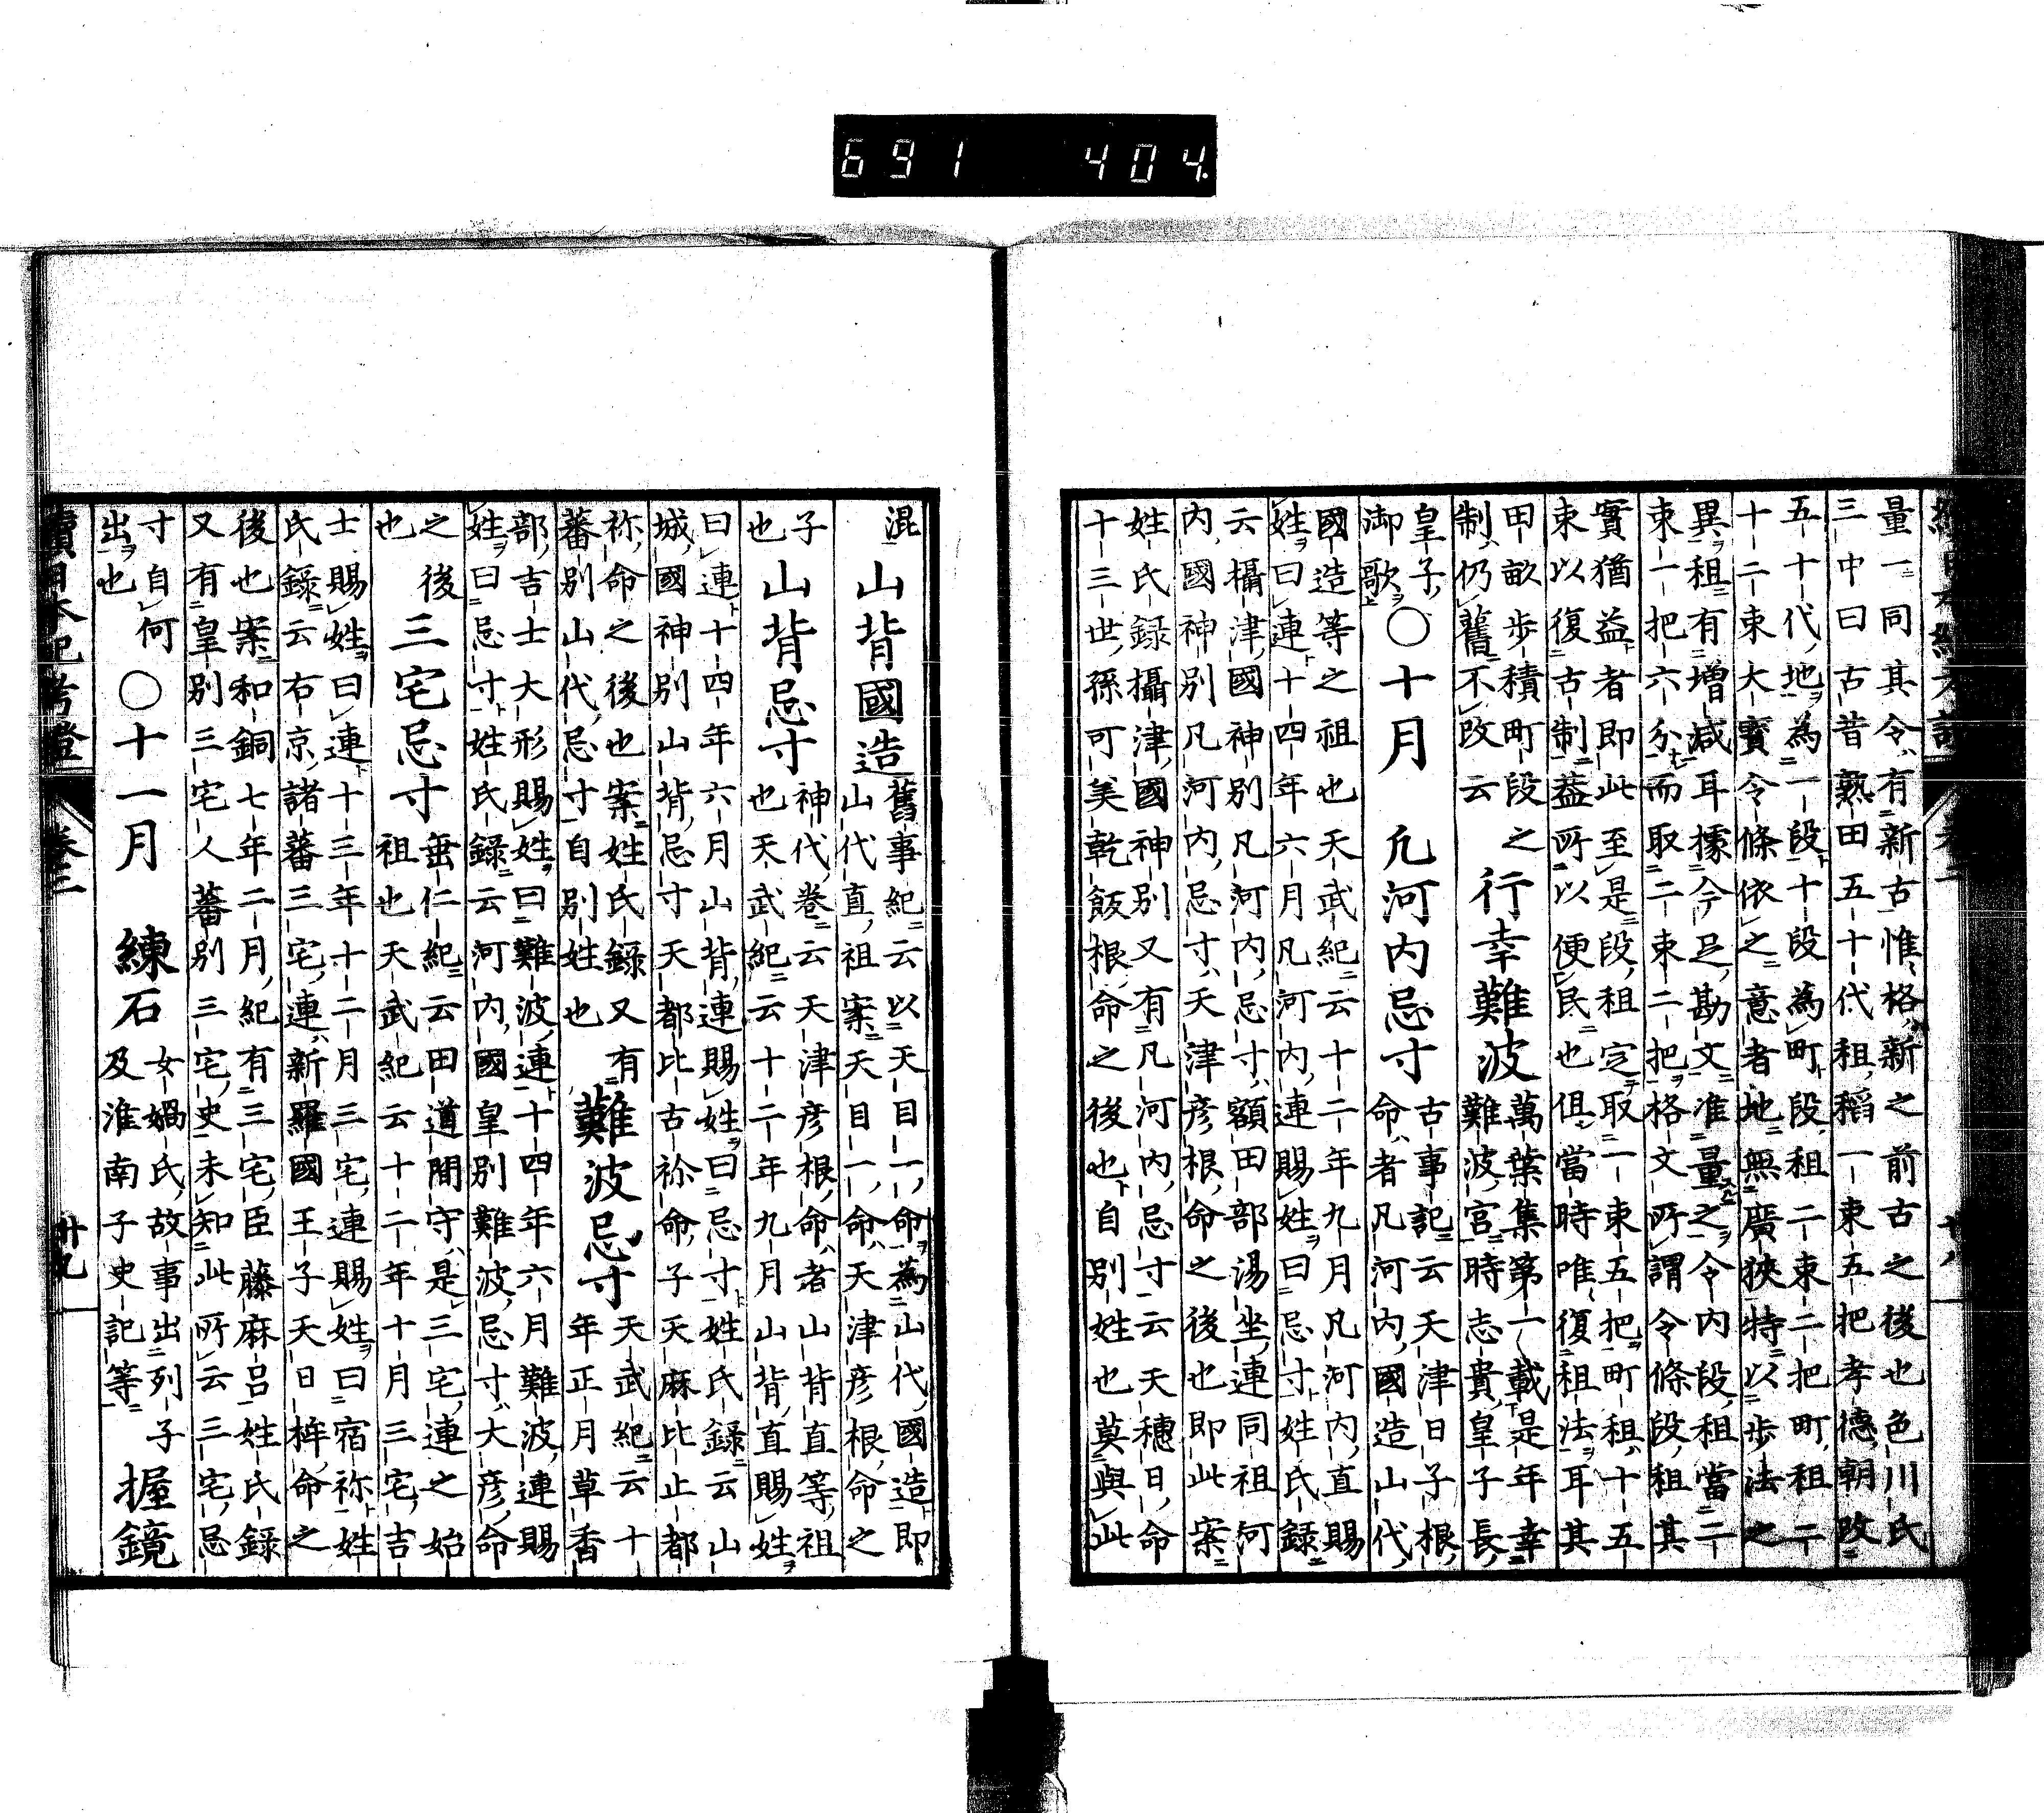 691 404.
量一同其令有新古惟格新之前古之後也色川氏
三中曰古昔熟田五十代租稻一束五把孝德朝改
五十代地為一段十段為町段租二束二把町租二
十二束大寶令條依之意者地無廣狹特以步法之
異租有增減耳據今足勘文准量之令内段租當二
束一把六分而取二束二把格文所謂令條段租其
實猶益者即此至是段租定取一束五把町租十五
束以復古制葢所以便民也但當時唯復租法耳其
田畝步積町段之
制仍舊不改云
行幸難波
萬葉集第一載是年幸
難波宮時志貴皇子長
皇子
御歌
〇十月
凡河内忌寸
古事記云天津日子根
命者凡河内國造山代
國造等之祖也天武紀云十二年九月凡河内直賜
姓曰連十四年六月凡河内連賜姓曰忌寸姓氏錄
云攝津國神別凡河内忌寸額田部湯坐連同祖河
内國神別凡河内忌寸天津彥根命之後也即此案
姓氏錄攝津國神別又有凡河内忌寸云天穗日命
十三世孫可美乾飯根命之後也自別姓也莫與此
混
山背國造
舊事紀云以天目一命為山代國造即
山代直祖案天目一命天津彥根命之
子
也
山背忌寸
神代卷云天津彥根命者山背直等祖
也天武紀云十二年九月山背直賜姓
曰連十四年六月山背連賜姓曰忌寸姓氏錄云山
城國神別山背忌寸天都比古祢命子天麻比止都
祢命之後也案姓氏錄又有
蕃別山代忌寸自別姓也
難波忌寸
天武紀云十
年正月草香
部吉士大形賜姓曰難波連十四年六月難波連賜
姓曰忌寸姓氏錄云河内國皇別難波忌寸大彥命
之後
也
三宅忌寸
垂仁紀云田道間守是三宅連之始
祖也天武紀云十二年十月三宅吉
士賜姓曰連十三年十二月三宅連賜姓曰宿祢姓
氏錄云右京諸蕃三宅連新羅國王子天日桙命之
後也案和銅七年二月紀有三宅臣藤麻呂姓氏錄
又有皇別三宅人蕃別三宅史未知此所云三宅忌
寸自何
出也
〇十一月
練石
女媧氏故事出列子
及淮南子史記等
握鏡
續日本紀考證
卷二
廿九